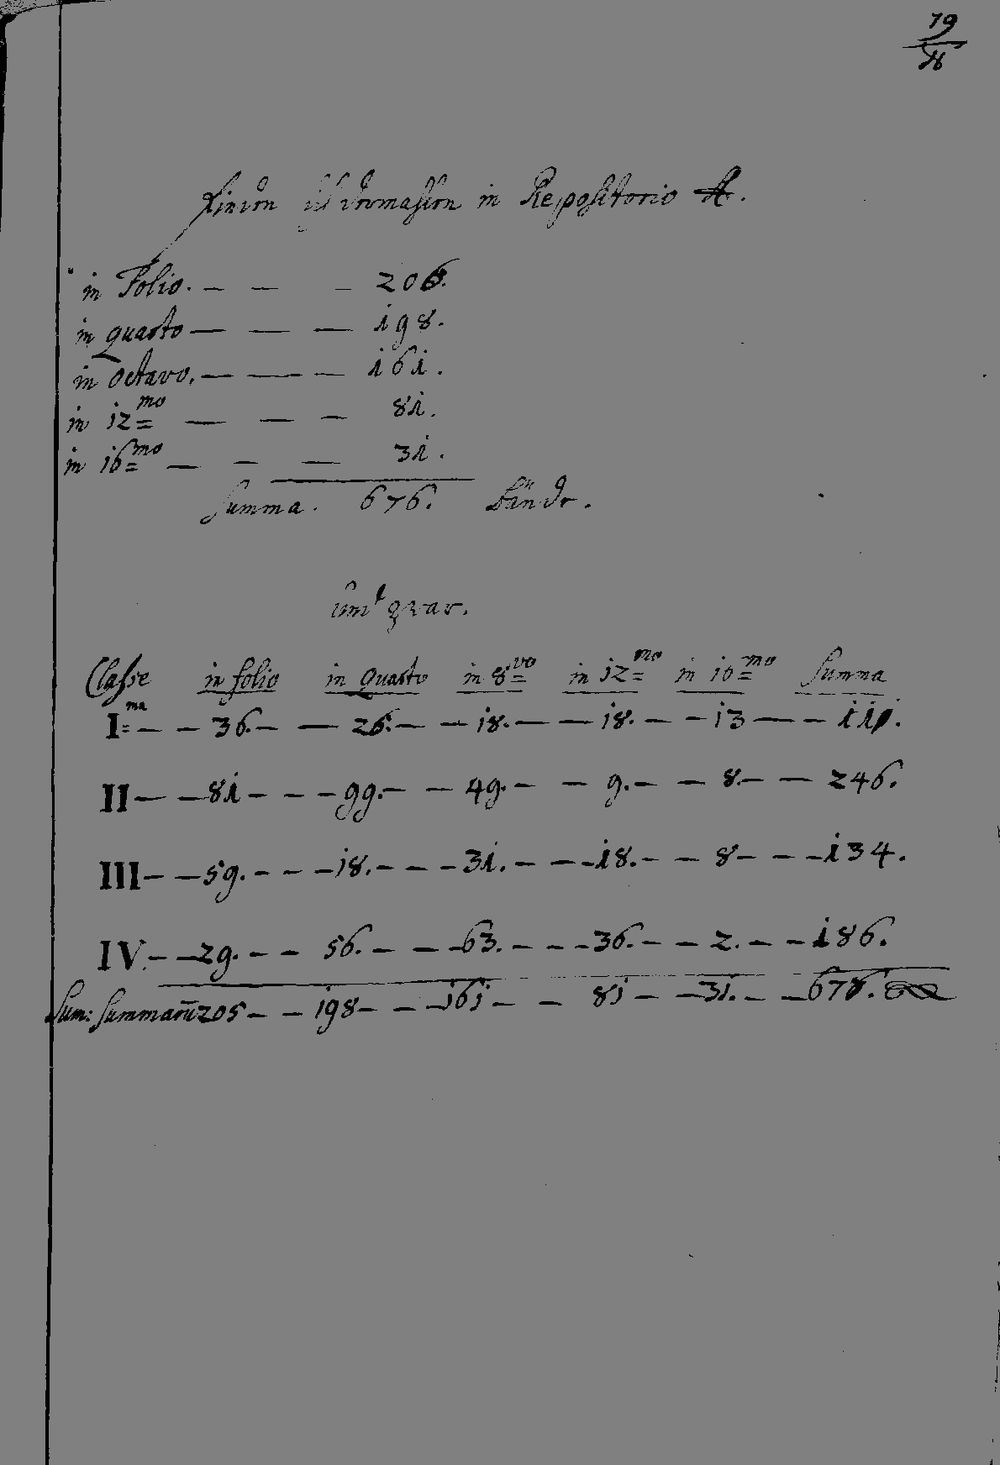 19
18
Seind dermaßen in Repositorio A.
in Folio. — — — 205.
in quarto — — — 198.
in octavo. — — — 161.
in 12mo — — — 81.
in 16mo — — — 31.
Summa. 676. Bände.
und zwar.
Classe in folio in quarto in 8vo in 12mo in 16mo Summa
Ima — — 36. — — 25. — — 18. — — 18. — — 13 — — 110.
II — — 81 — — — 99. — — 49. — — 9. — — 8. — — 246.
III — — 59. — — — 18. — — — 31. — — — 18. — — 8 — — — 134.
IV. — — 29. — — 56. — — — 63. — — — 36. — — 2. — — — 186.
Sum: Summarū 205 — — 198 — — — 161 — — 81 — — 31. — — 676.